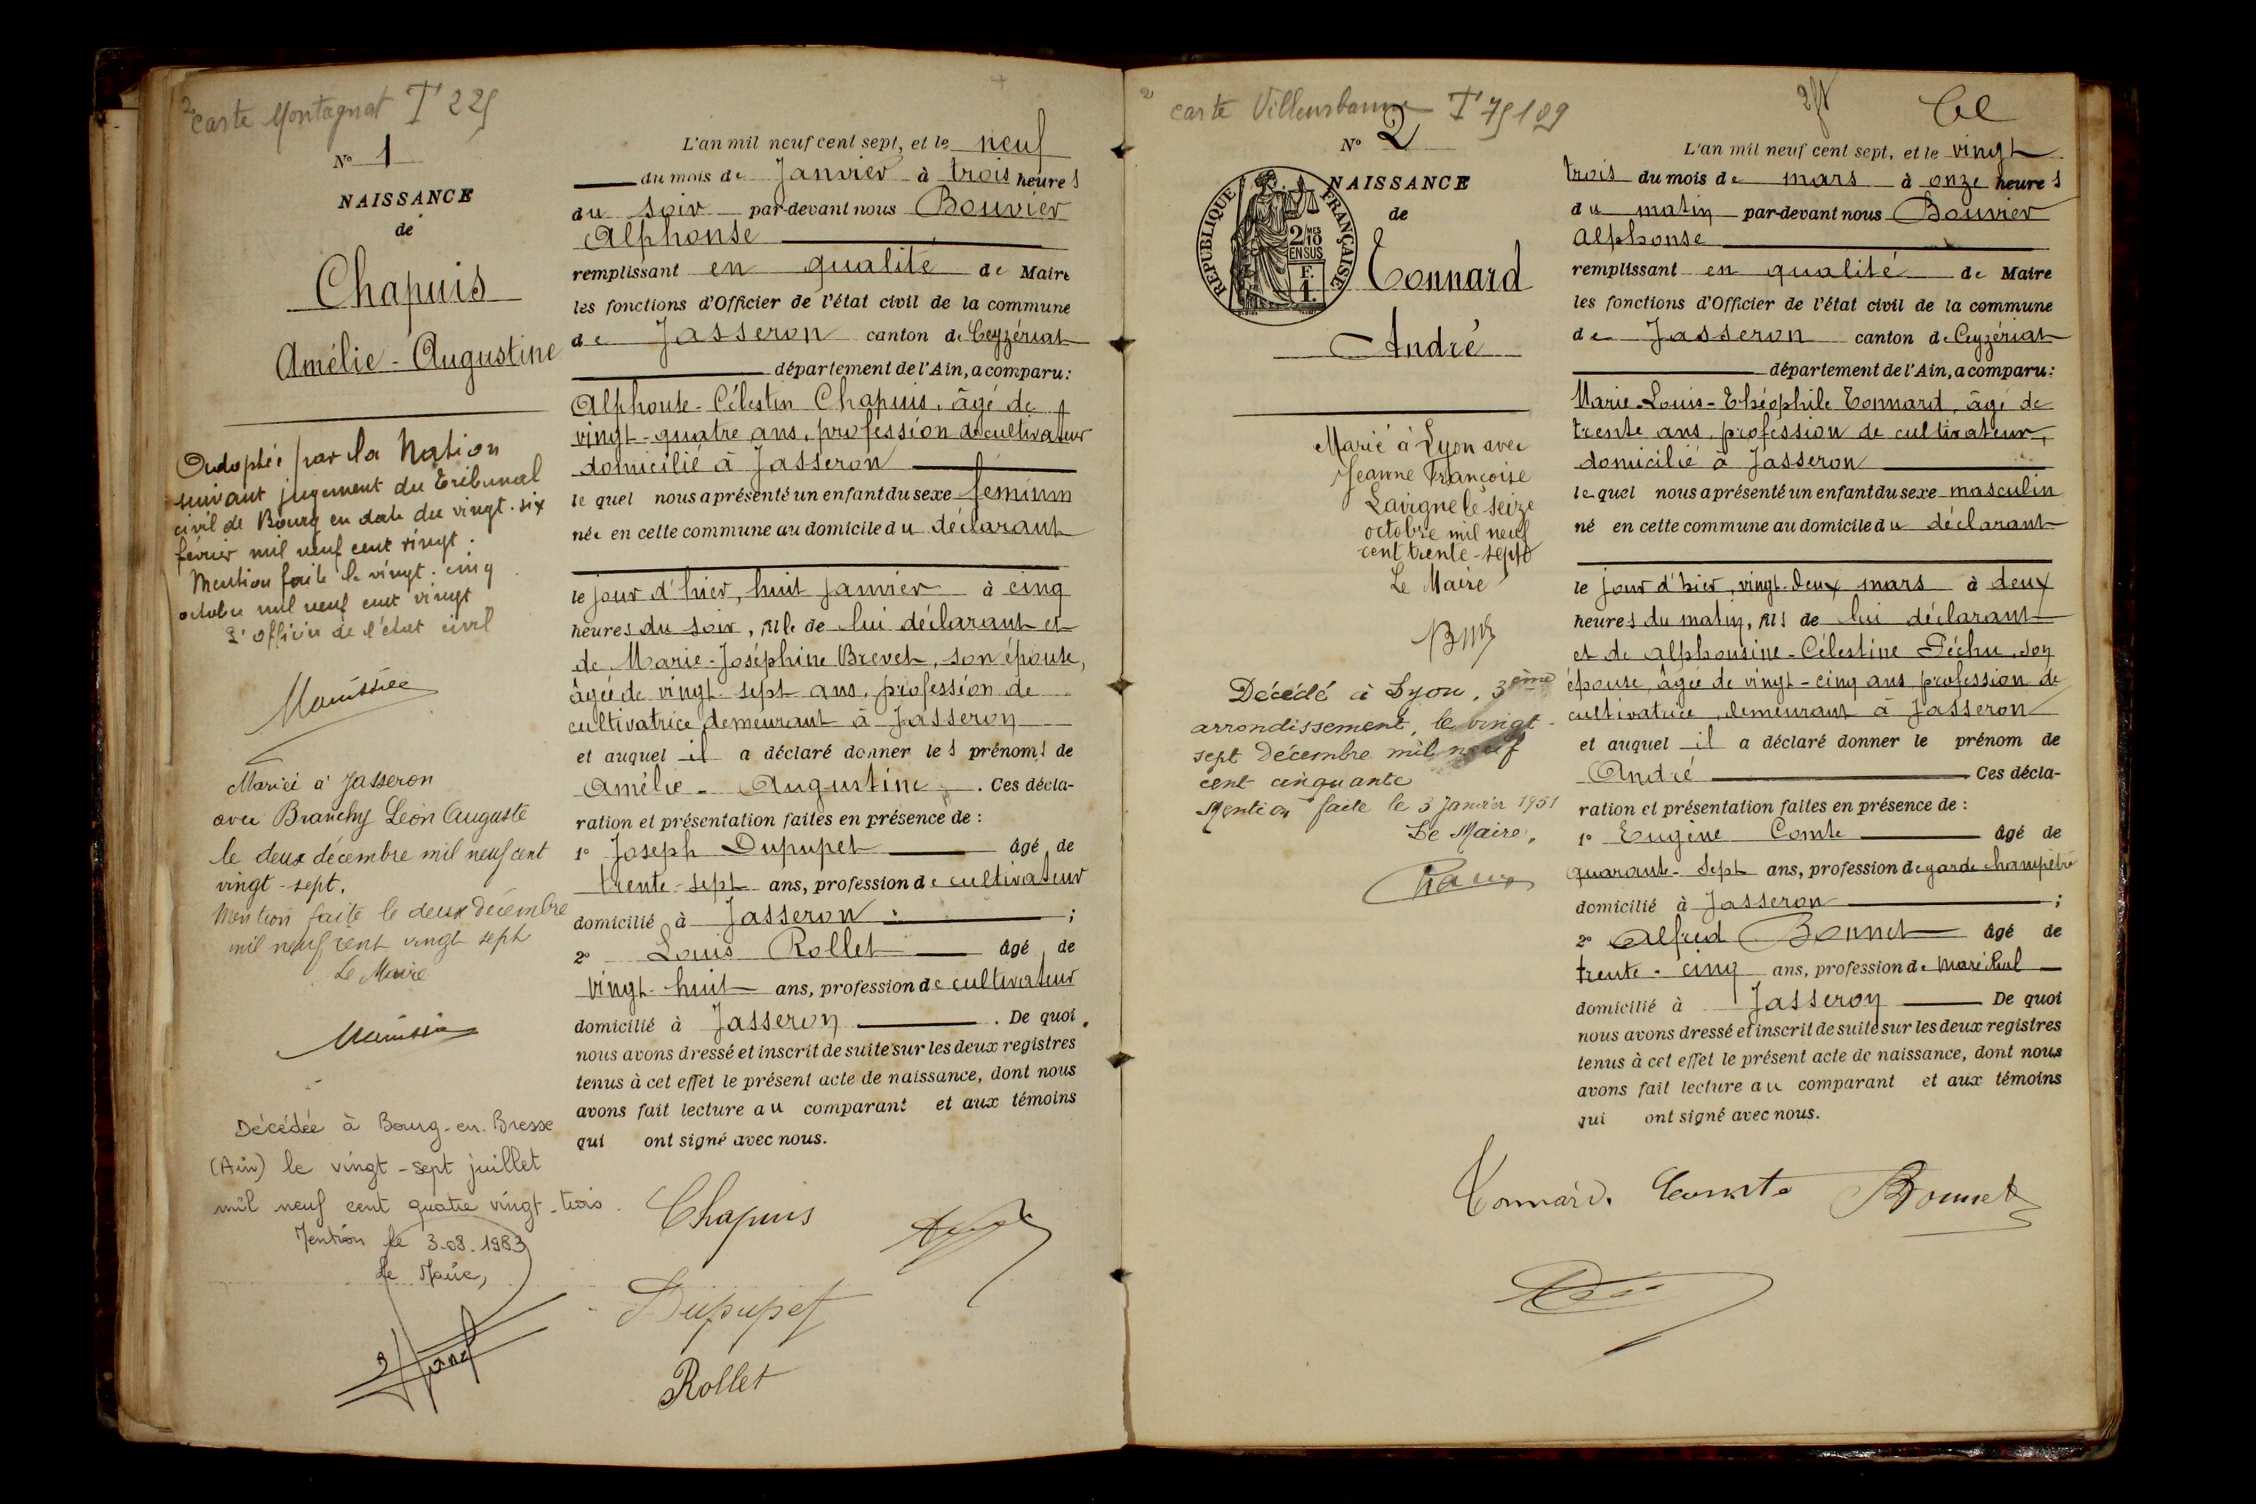 carte Montagnat T' 225
N° 1
NAISSANCE
de
Chapuis
Amélie - Augustine
Adoptée par la Nation
suivant jugement du Tribunal
civil de Bourg en date du vingt-six
février mil neuf cent vingt.
Mention faite le vingt-cinq
octobre mil neuf cent vingt
L'officier de l'état civil
Mariée à Jasseron
avec Branchy Léon Auguste
le deux décembre mil neuf cent
vingt-sept.
Mention faite le deux décembre
mil neuf cent vingt sept
Le Maire
Décédée à Bourg-en-Bresse
(Ain) le vingt-sept juillet
mil neuf cent quatre vingt-trois.
Mention le 3.08.1983
Le Maire,
L'an mil neuf cent sept, et le neuf
du mois de Janvier à trois heures
du soir par-devant nous Bouvier
Alphonse
remplissant en qualité de Maire
les fonctions d'Officier de l'état civil de la commune
de Jasseron canton de Ceyzériat
département de l'Ain, a comparu:
Alphonse-Célestin Chapuis, âgé de
vingt-quatre ans, profession de cultivateur
domicilié à Jasseron
le quel nous a présenté un enfant du sexe féminin
née en cette commune au domicile du déclarant
le jour d'hier, huit janvier à cinq
heures du soir, fille de lui déclarant et
de Marie-Joséphine Brevet, son épouse,
âgée de vingt-sept ans, profession de
cultivatrice demeurant à Jasseron
et auquel il a déclaré donner les prénoms de
Amélie - Augustine. Ces décla-
ration et présentation faites en présence de :
1° Joseph Dupupet âgé de
trente-sept ans, profession de cultivateur
domicilié à Jasseron ;
2° Louis Rollet âgé de
vingt-huit ans, profession de cultivateur
domicilié à Jasseron. De quoi
nous avons dressé et inscrit de suite sur les deux registres
tenus à cet effet le présent acte de naissance, dont nous
avons fait lecture au comparant et aux témoins
qui ont signé avec nous.
Chapuis
Dupupet
Rollet
carte Villeurbanne T' 75109
N° 2
NAISSANCE
de
RÉPUBLIQUE FRANÇAISE
2/10 MES
EN SUS
F.
1.
Tonnard
André
Marié à Lyon avec
Jeanne Françoise
Lavigne le seize
octobre mil neuf
cent trente-sept
Le Maire
Décédé à Lyon, 3ème
arrondissement, le vingt-
sept décembre mil neuf
cent cinquante
Mention faite le 3 Janvier 1951
Le Maire,
L'an mil neuf cent sept, et le vingt
trois du mois de mars à onze heures
du matin par-devant nous Bouvier
Alphonse
remplissant en qualité de Maire
les fonctions d'Officier de l'état civil de la commune
de Jasseron canton de Ceyzériat
département de l'Ain, a comparu:
Marie-Louis-Théophile Tonnard, âgé de
trente ans, profession de cultivateur,
domicilié à Jasseron
le quel nous a présenté un enfant du sexe masculin
né en cette commune au domicile du déclarant
le jour d'hier, vingt-deux mars à deux
heures du matin, fils de lui déclarant
et de Alphonsine-Célestine Péchu, son
épouse, âgée de vingt-cinq ans profession de
cultivatrice, demeurant à Jasseron
et auquel il a déclaré donner le prénom de
André Ces décla-
ration et présentation faites en présence de :
1° Eugène Comte âgé de
quarante-sept ans, profession de garde champêtre
domicilié à Jasseron ;
2° Alfred Bonnet âgé de
trente-cinq ans, profession de maréchal
domicilié à Jasseron De quoi
nous avons dressé et inscrit de suite sur les deux registres
tenus à cet effet le présent acte de naissance, dont nous
avons fait lecture au comparant et aux témoins
qui ont signé avec nous.
Tonnard. Comte Bonnet